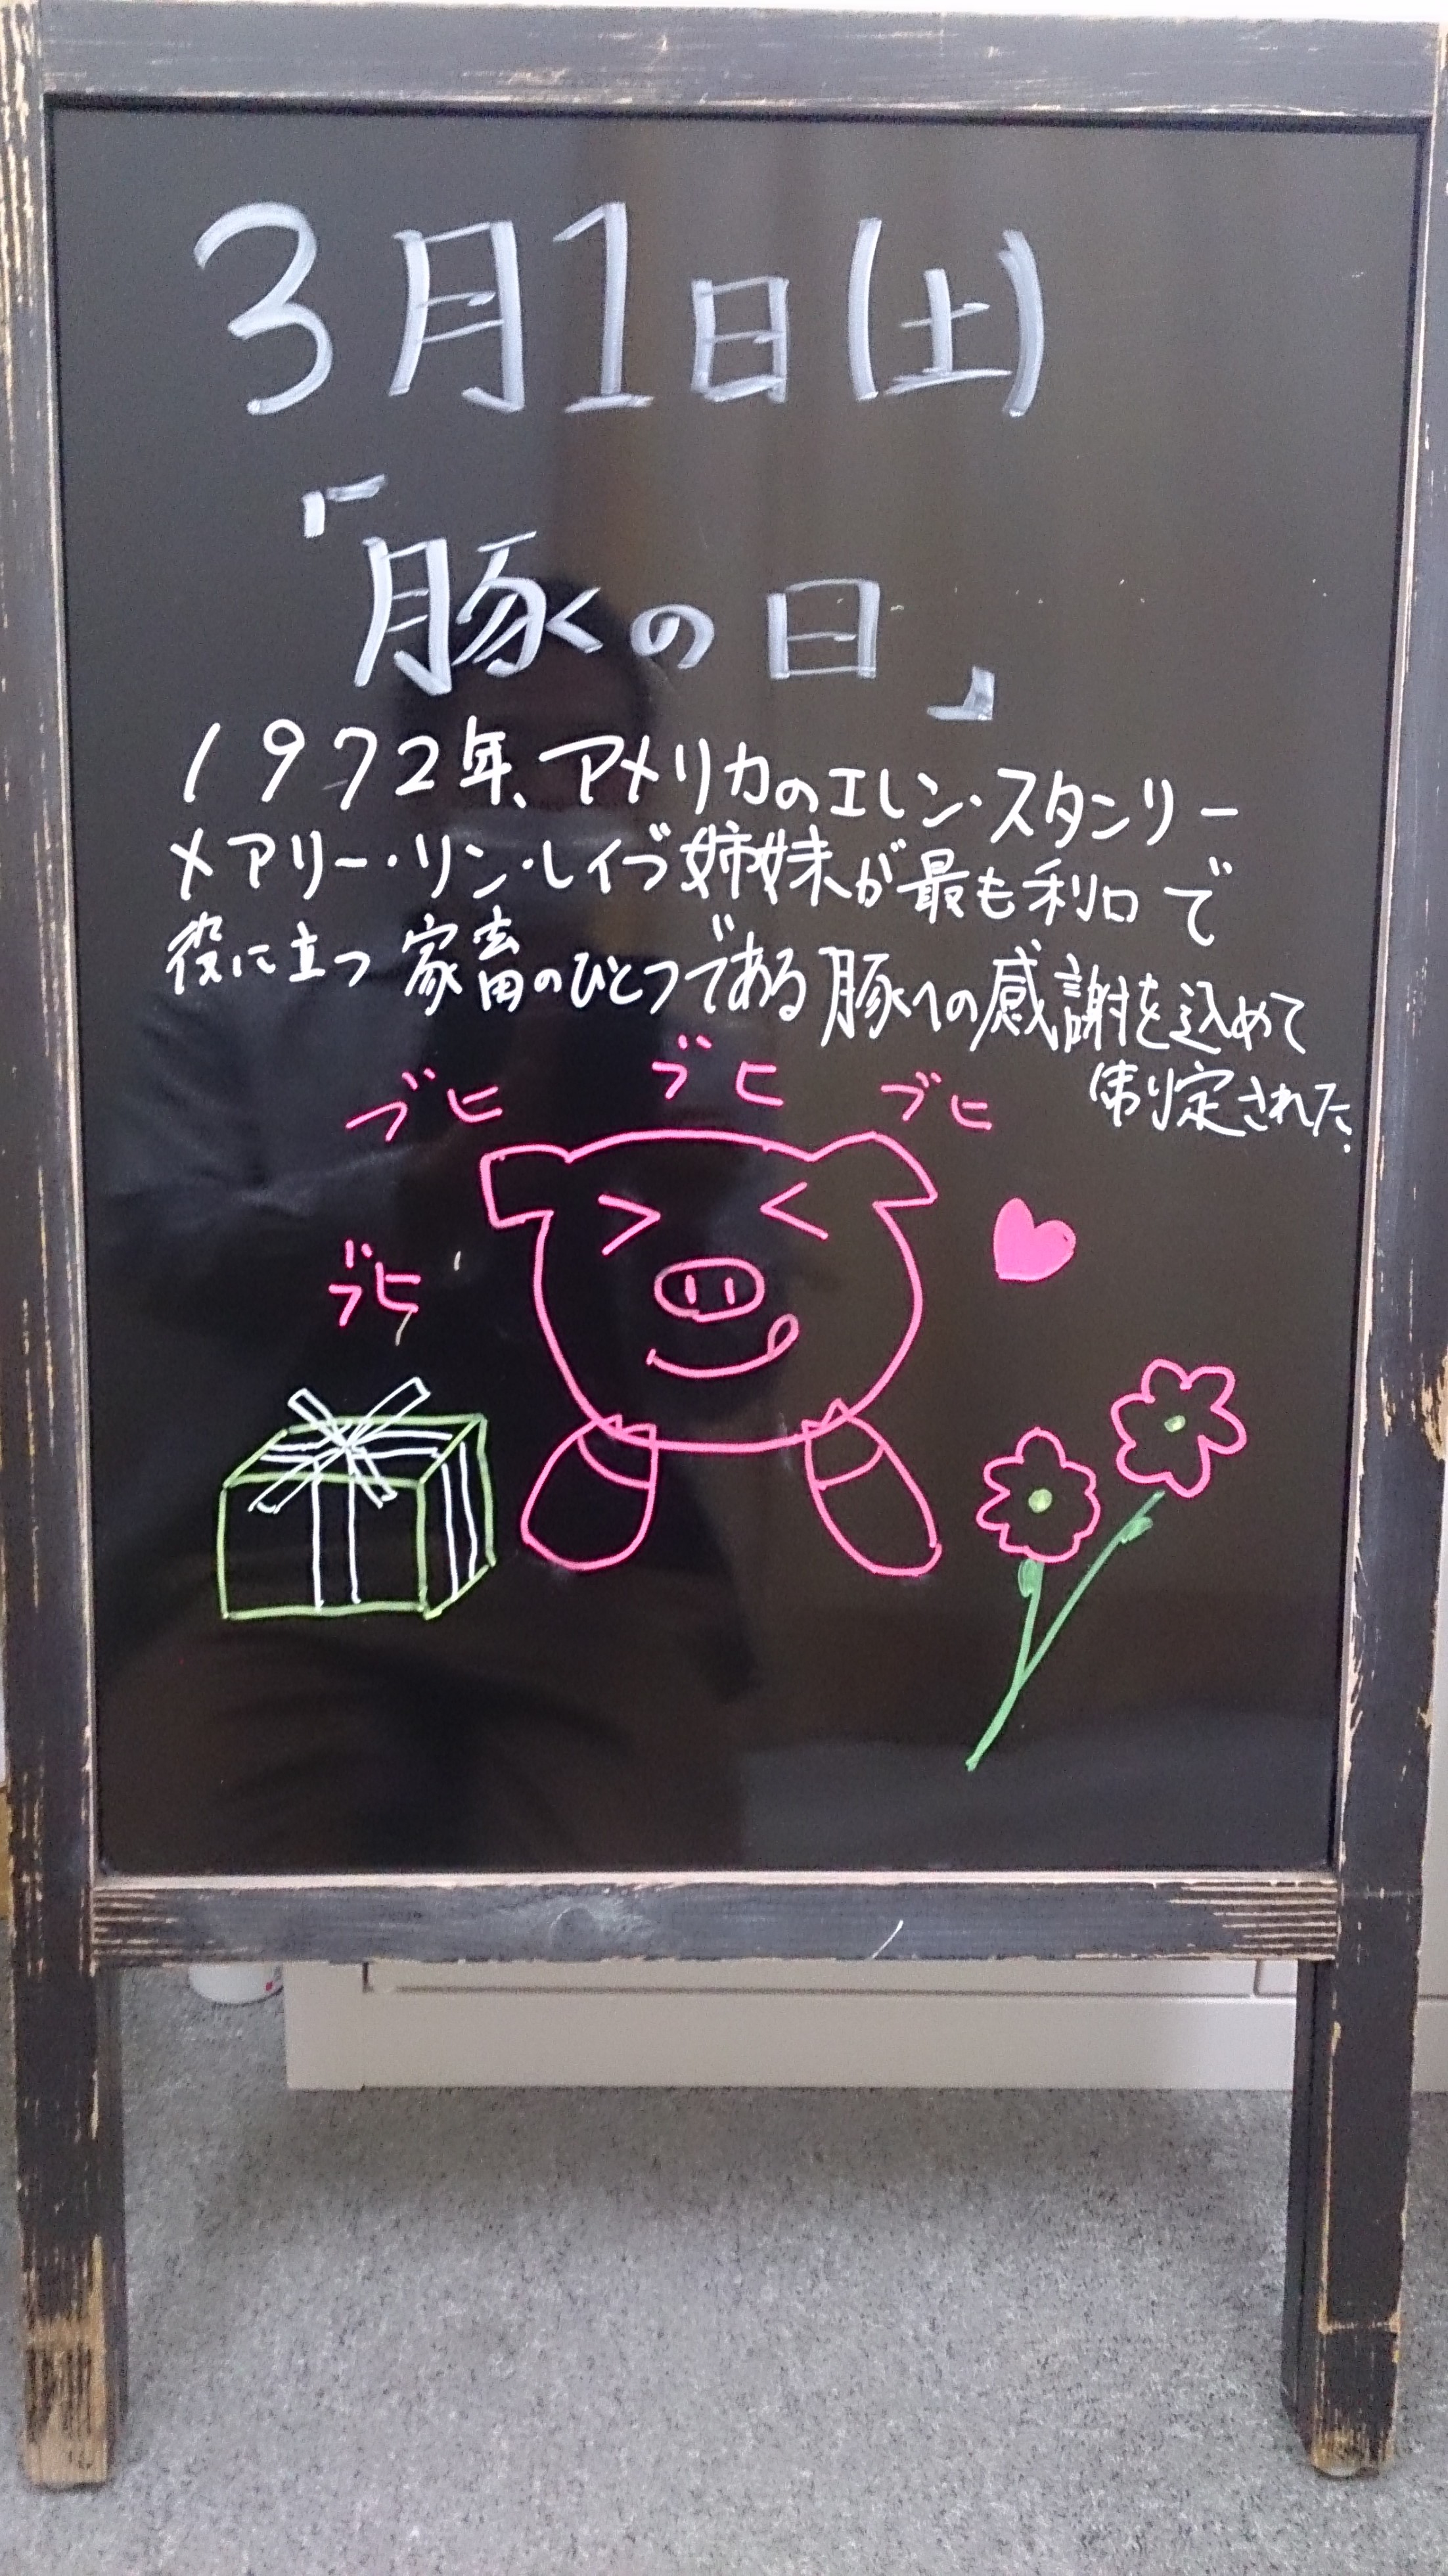 3月1日(土)
「豚の日」
1972年、アメリカのエレン・スタンリー
メアリー・リン・レイブ姉妹が最も利口で
役に立つ家畜のひとつである豚への感謝を込めて
制定された。
ブヒ ブヒ ブヒ
ブヒ